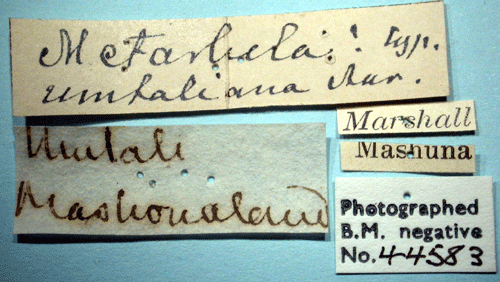 Metarbela! Typ.
umtaliana Aur.
Marshall
Mashuna
Umtali
Mashonaland
Photographed
B.M. negative
No. 44583